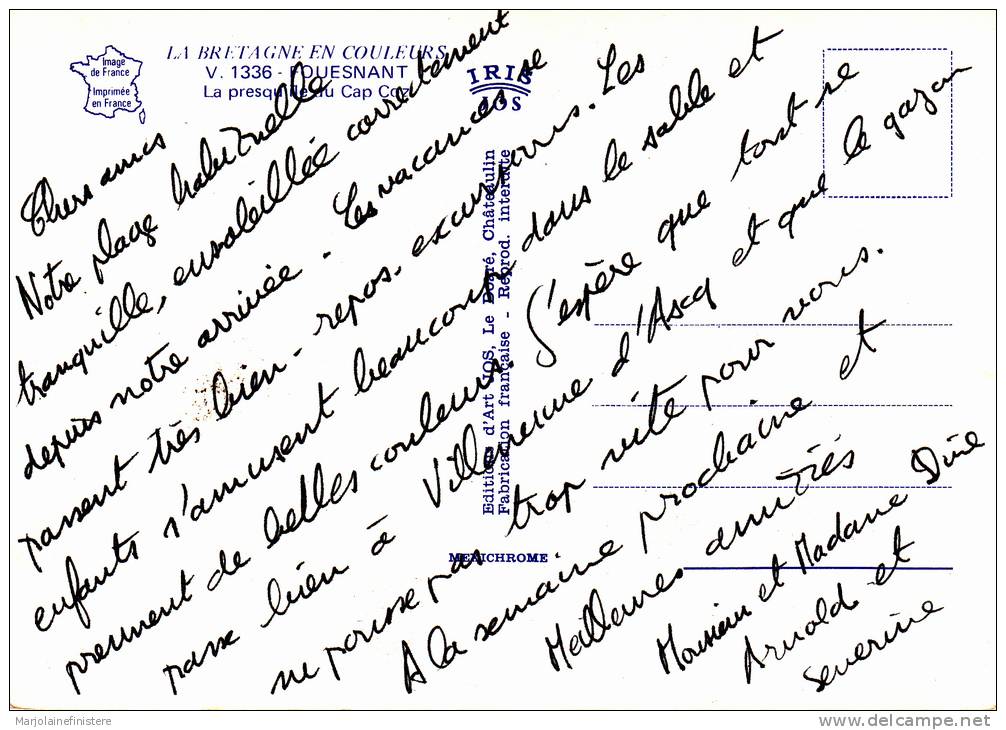 Image
de France
Imprimée
en France
LA BRETAGNE EN COULEURS
V. 1336 - FOUESNANT
La presqu'île du Cap Coz
IRIS
JOS
Editions d'Art JOS, Le Doaré, Châteaulin
Fabrication française - Reprod. interdite
MEXICHROME
Chers amis
Notre plage habituelle
tranquille, ensoleillée correctement
depuis notre arrivée. Les vacances se
passent très bien - repos, excursions. Les
enfants s'amusent beaucoup dans le sable et
prennent de belles couleurs. J'espère que tout se
passe bien à Villeneuve d'Ascq et que le gazon
ne pousse pas trop vite pour vous.
A la semaine prochaine et
Meilleures amitiés
Monsieur et Madame
Arnold et
Severine
Marjolainefinistere
delcampe.net